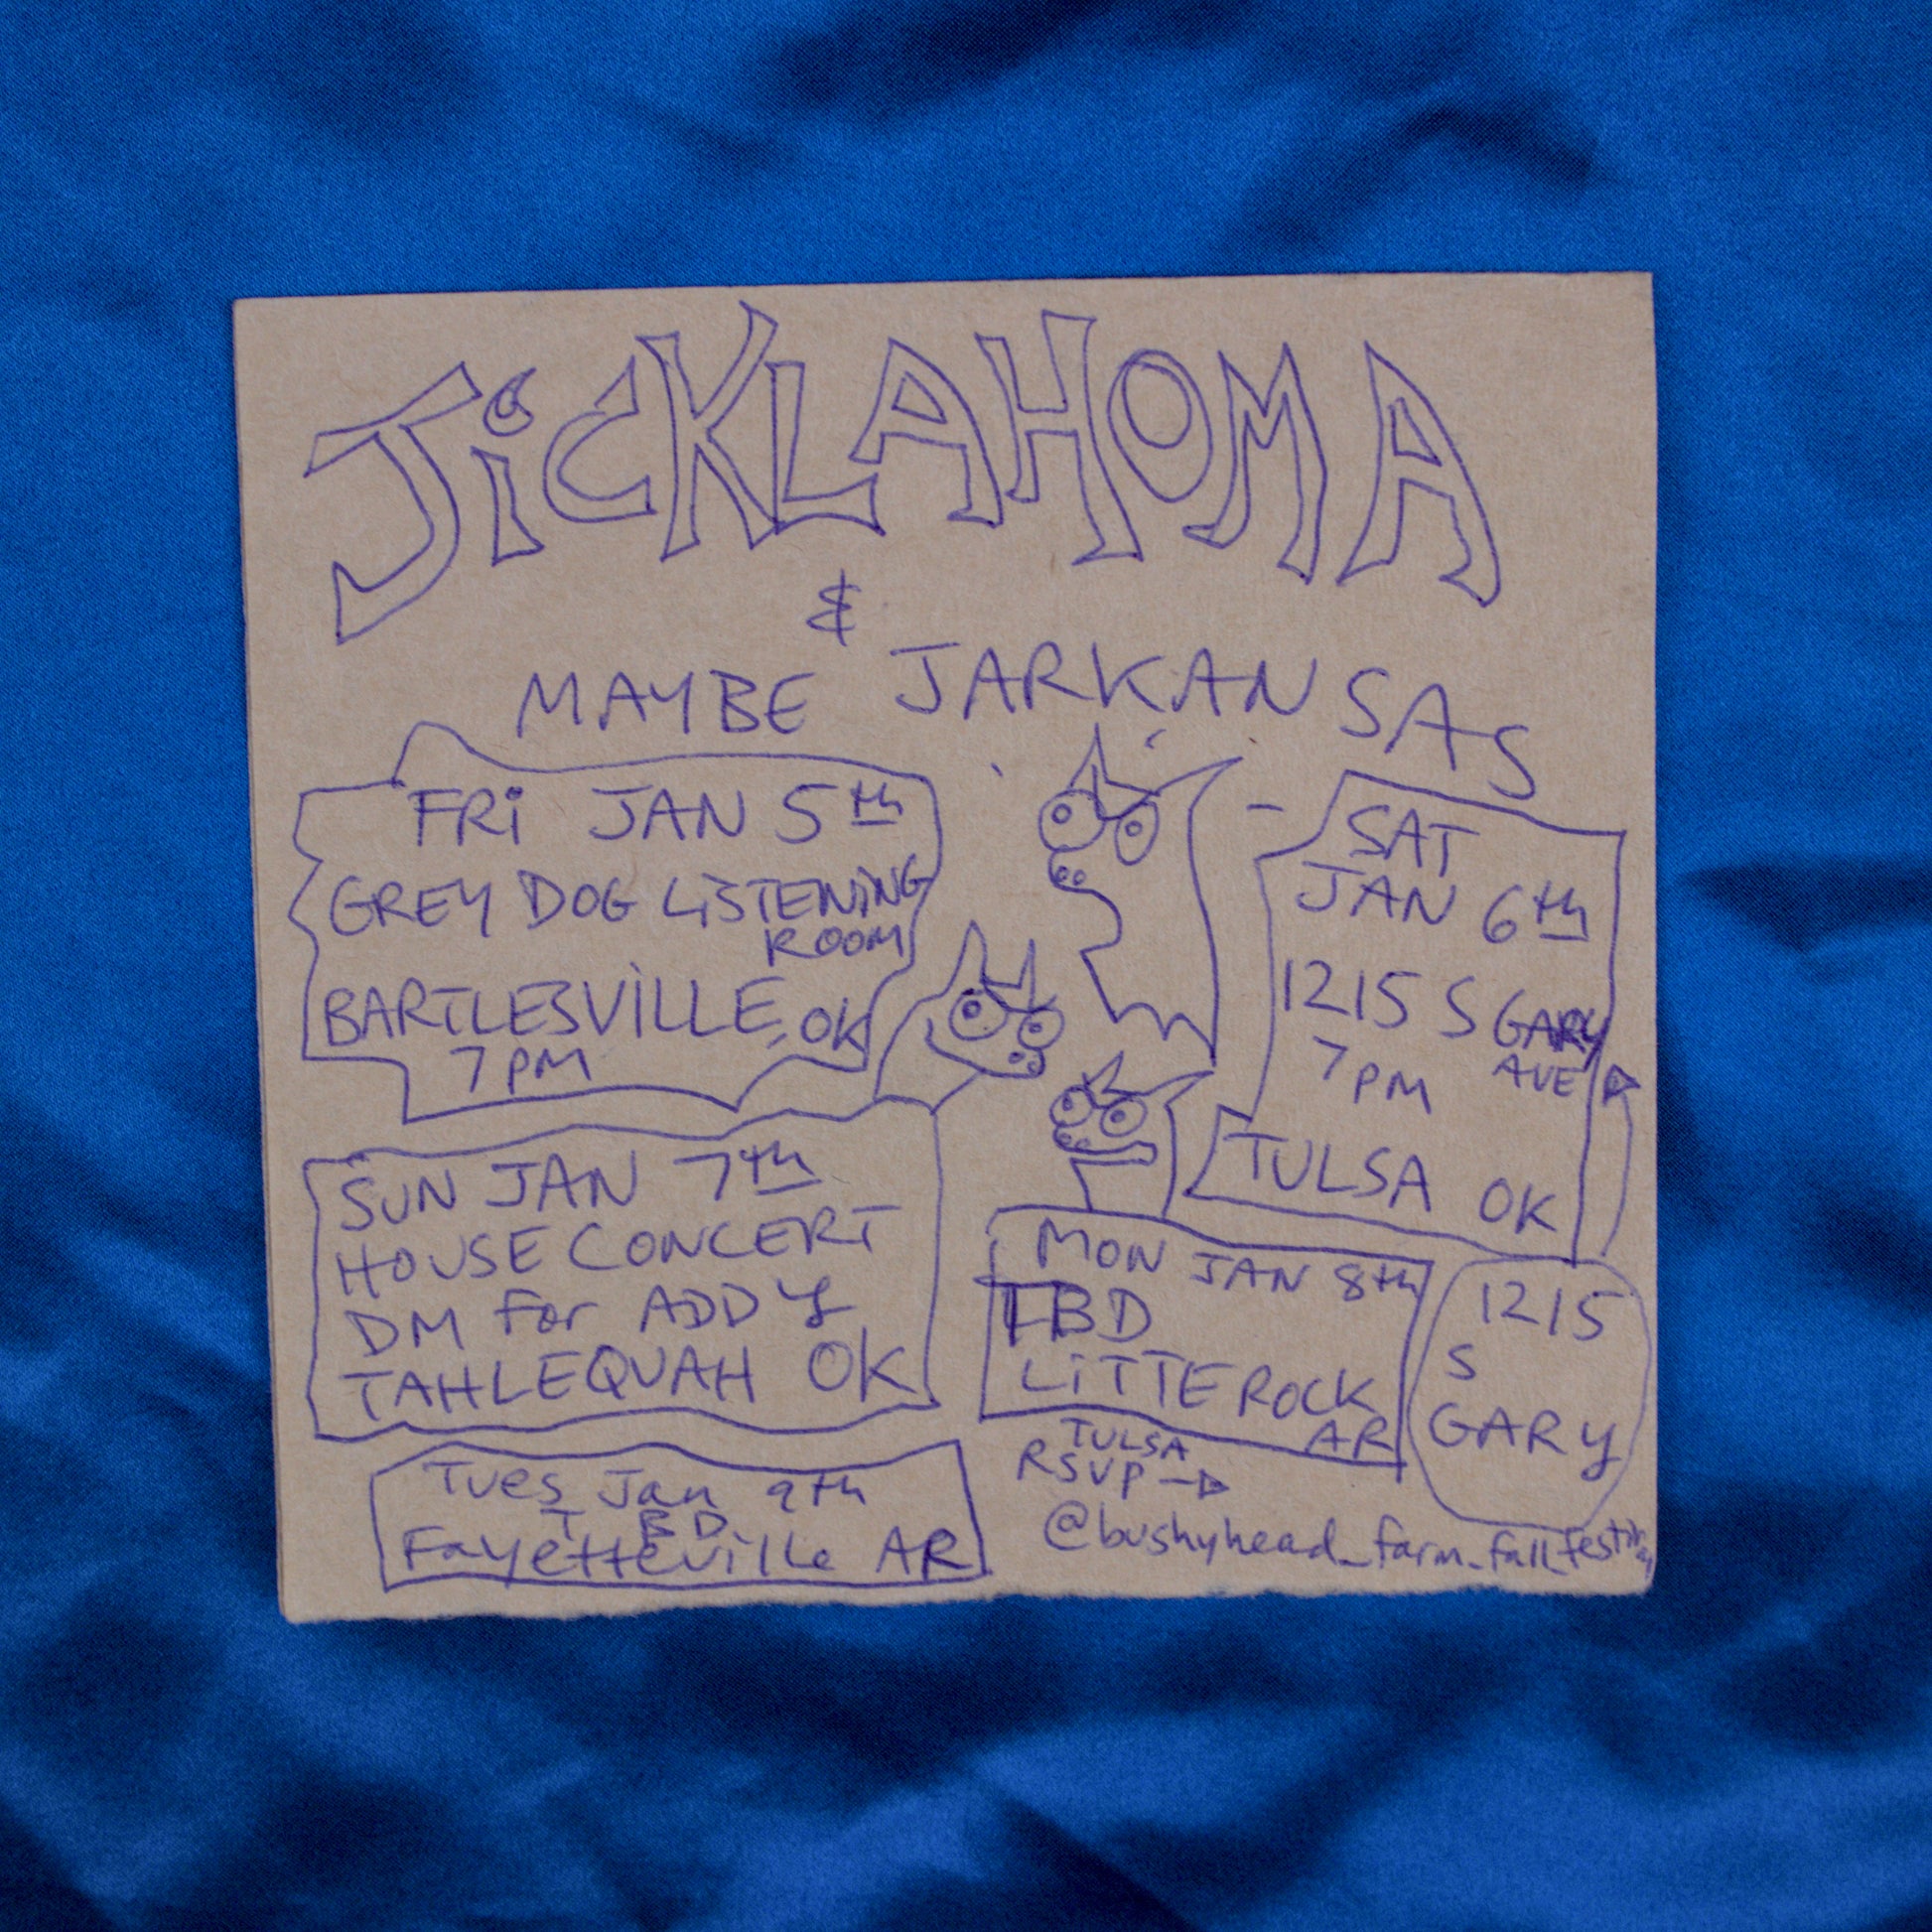 JiCKLAHOMA
&
MAYBE JARKANSAS
FRi JAN 5th
GREY DOG LiSTENiNG
ROOM
BARTLESViLLE, OK
7 PM
SAT
JAN 6th
1215 S GARY
AVE
7 PM
TULSA OK
SUN JAN 7th
HOUSE CONCERT
DM For ADDY
TAHLEQUAH OK
MON JAN 8th
TBD
LiTTE ROCK
AR
1215
S
GARY
Tues Jan 9th
T B D
Fayetteville AR
TULSA
RSVP →
@bushyhead_farm_fall_